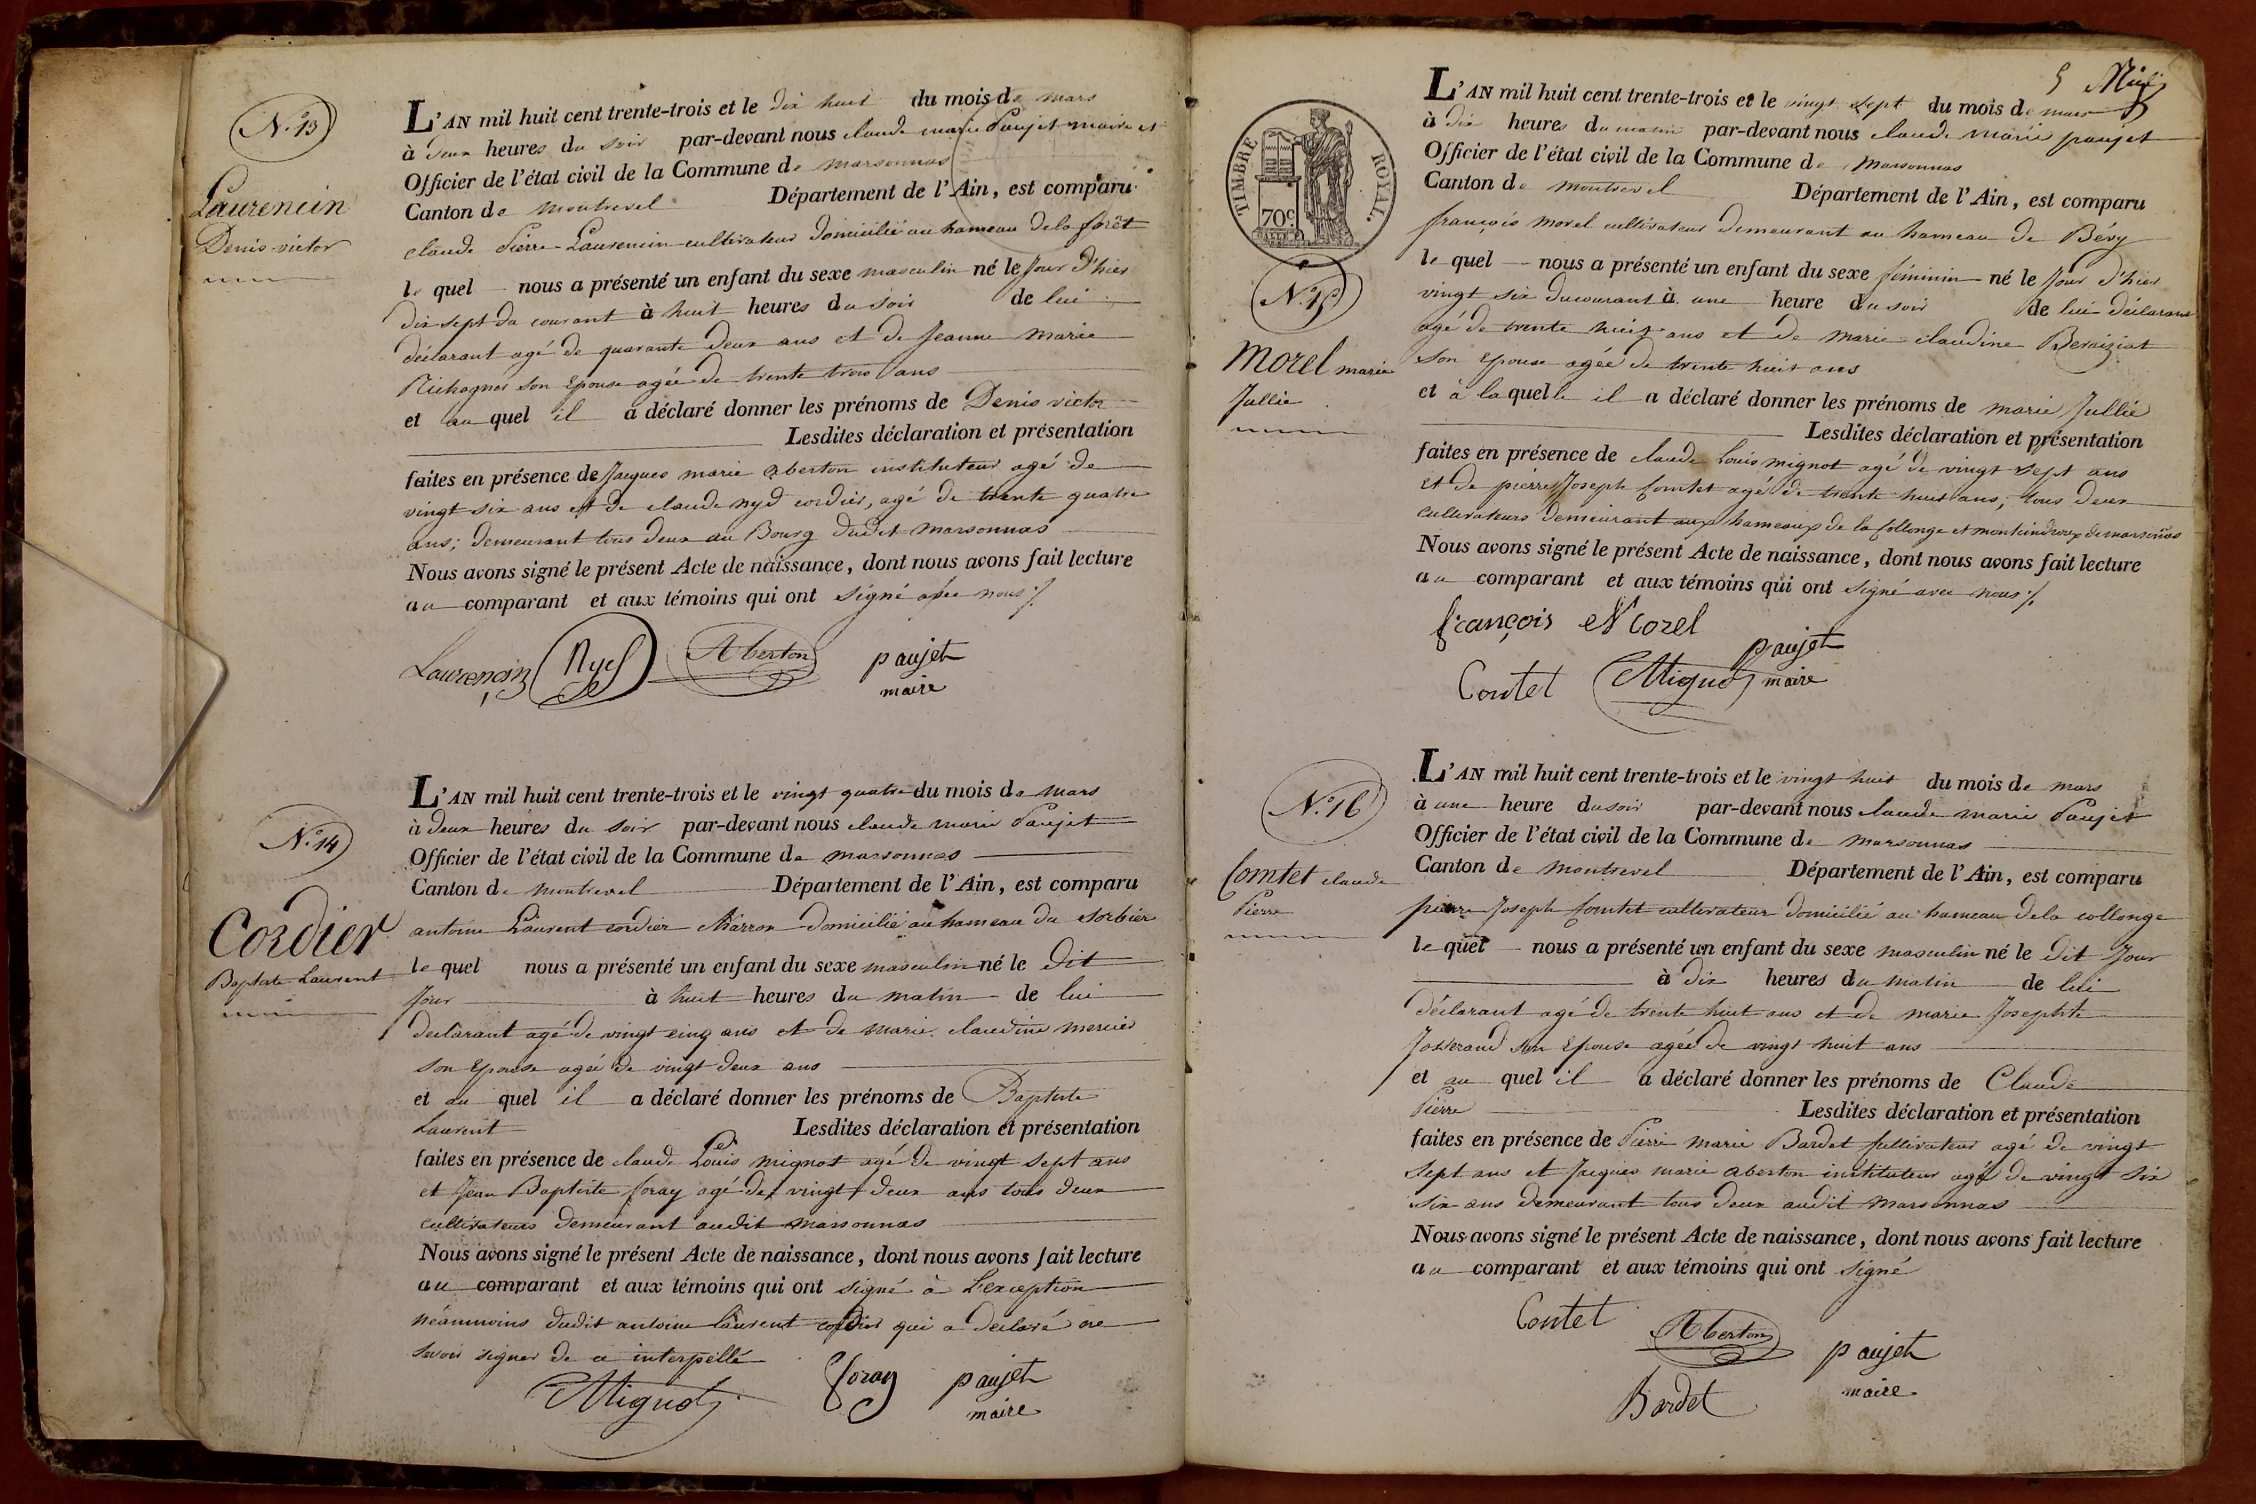 N.° 13
Laurencin
Denis victor
L'AN mil huit cent trente-trois et le dix huit du mois de mars
à deux heures du soir par-devant nous claude marie Paujet maire et
Officier de l'état civil de la Commune de marsonnas
Canton de montrevel Département de l'Ain, est comparu
claude Pierre Laurencin cultivateur domicilié au hameau de la forêt
le quel nous a présenté un enfant du sexe masculin né le Jour d'hier
dix sept du courant à huit heures du soir de lui
déclarant agé de quarante deux ans et de Jeanne Marie
son Epouse agée de trente trois ans
et au quel il a déclaré donner les prénoms de Denis victor
Lesdites déclaration et présentation
faites en présence de Jacques marie aberton instituteur agé de
vingt six ans et de claude nyd cordier, agé de trente quatre
ans; demeurant tous deux au Bourg dudit marsonnas
Nous avons signé le présent Acte de naissance, dont nous avons fait lecture
au comparant et aux témoins qui ont signé avec nous ./.
Laurencin Nyd Aberton paujet
maire
N.° 14
Cordier
Baptiste Laurent
L'AN mil huit cent trente-trois et le vingt quatre du mois de mars
à deux heures du soir par-devant nous claude marie Paujet
Officier de l'état civil de la Commune de marsonnas
Canton de montrevel Département de l'Ain, est comparu
antoine Laurent cordier Marron domicilié au hameau du sorbier
le quel nous a présenté un enfant du sexe masculin né le dit
Jour à huit heures du matin de lui
declarant agé de vingt cinq ans et de marie claudine mercier
son Epouse agée de vingt deux ans
et au quel il a déclaré donner les prénoms de Baptiste
Laurent Lesdites déclaration et présentation
faites en présence de claude Louis mignot agé de vingt sept ans
et Jean Baptiste foray agé de vingt deux ans tous deux
cultivateurs demeurant audit marsonnas
Nous avons signé le présent Acte de naissance, dont nous avons fait lecture
au comparant et aux témoins qui ont signé à L'exception
néanmoins dudit antoine Laurent cordier qui a declaré ne
savoir signer de ce interpellé
Mignot foray paujet
maire
5
TIMBRE ROYAL.
70c
N.° 15
Morel marie
Jullie
L'AN mil huit cent trente-trois et le vingt sept du mois de mars
à dix heures du matin par-devant nous claude marie paujet
Officier de l'état civil de la Commune de marsonnas
Canton de montrevel Département de l'Ain, est comparu
françois morel cultivateur demeurant au hameau de Bévy
le quel nous a présenté un enfant du sexe féminin né le Jour d'hier
vingt six du courant à une heure du soir de lui déclarant
agé de trente huit ans et de marie claudine Beraiziat
son Epouse agée de trente huit ans
et à la quelle il a déclaré donner les prénoms de marie Jullie
Lesdites déclaration et présentation
faites en présence de claude Louis mignot agé de vingt sept ans
et de pierre Joseph Comtet agé de trente huit ans, tous deux
cultivateurs demeurant aux hameaux de la Collonge et de marsonnas
Nous avons signé le présent Acte de naissance, dont nous avons fait lecture
au comparant et aux témoins qui ont signé avec nous ./.
françois Morel
paujet
Contet Mignot maire
N.° 16
Comtet claude
Pierre
L'AN mil huit cent trente-trois et le vingt huit du mois de mars
à une heure du soir par-devant nous claude marie Paujet
Officier de l'état civil de la Commune de marsonnas
Canton de montrevel Département de l'Ain, est comparu
pierre Joseph Comtet cultivateur domicilié au hameau de la collonge
le quel nous a présenté un enfant du sexe masculin né le dit Jour
à dix heures du matin de lui
déclarant agé de trente huit ans et de marie Josephte
Josserand son Epouse agée de vingt huit ans
et au quel il a déclaré donner les prénoms de Claude
Pierre Lesdites déclaration et présentation
faites en présence de Pierre marie Bardet cultivateur agé de vingt
sept ans et Jacques marie aberton instituteur agé de vingt six
six ans demeurant tous deux audit marsonnas
Nous avons signé le présent Acte de naissance, dont nous avons fait lecture
au comparant et aux témoins qui ont signé
Contet Aberton paujet
Bardet maire